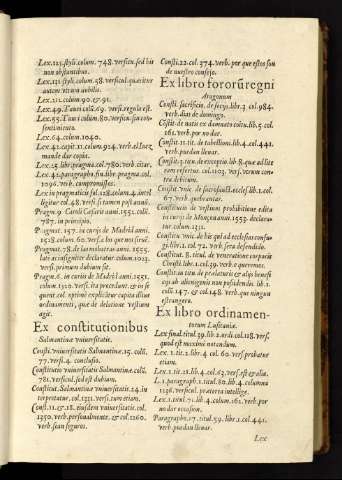 Lex.123.styli.colum. 748. versicu.sed his
non obstantibus.
Lex.131.styli.colum. 58. versicul.quaeritur
autem vtrum nubilis.
Lex.211.colum.90.& 91.
Lex.49.Tauri colū.69. versi.regula est.
Lex.55.Tauri colum.80. versicu.sia con-
sentimiento.
Lex.64.colum.1040.
Lex.41.capit.11.colum.924. verb.el Iuez
mande dar copia.
Lex.25.libr.pragma.col.780.verb.citar.
Lex.42.paragrapho.fin.libr.pragma.col.
1096. verb. compromisses.
Lex in pragmaticis fol.128.colum.4.intel
ligitur col.48. versi.si tamen post annū.
Pragm.9. Caroli Caesaris anni.1551. colū.
787. in principio.
Pragmat. 157. in curijs de Madrid anni.
1528.colum. 60. versi.a los que assi siruē.
Pragmat. 78.de las malinas anni.1555.
late ac insigniter declaratur colum.1023.
versi.primum dubium sit.
Pragm.6. in curijs de Madrid anni.1551.
colum.1310. versi.ita procedunt.& in se
quent.col. optimè explicatur copia illius
ordinamenti, quae de delatione vestium
agit.
Ex constitutionibus
Salmantinae vniuersitatis.
Consti.vniuersitatis Salmantinae.15. colū.
77.versi.4. conclusio.
Constitutio vniuersitatis Salmantinae.colū.
781.versicul.sed est dubium.
Constitut.Salmantinae vniuersitatis.24.in
terpretatur, col.1331. versi.tum etiam.
Const.11.& 18. eiusdem vniuersitatis. col.
1250. verb.personalmente. & col.1260.
verb.sean seguros.
Consti.22.col.374.verb. por que estos son
de nuestro consejo.
Ex libro fororū regni
Aragonum
Consti. sacrificio, de seysi.libr.3 col.984.
verb.dias de domingo.
Cōstit.de natis ex damnato coitu.lib.5.col.
161.verb.por no dar.
Constit.11.tit.de tabellion.lib.4.col.441.
verb.puedan lleuar.
Constit.5.tit.de exceptio.lib 8.quae ad lite
ram refertur.col.1103. versi.verum con-
tra debitum.
Constit vnic.de sacrosancti.eccles.lib.1.col.
67. verb.quebrantar.
Constitutio de vestium prohibitione edita
in curijs de Monçon anni.1553. declara-
tur colum.1311.
Constitu.vnic.de his qui ad ecclesias confu-
gi.libr.1. col.72. verb sera defendido.
Constitut. 8. titul. de veneratione corporis
Christi libr.1.col.59. verb.e queremos.
Constit.11.titu.de praelaturis & alijs benefi
cijs ab alienigenis non possidendis. lib.1.
colū.147. & col.148. verb. que ningun
estrangero.
Ex libro ordinamen-
torum Lusitaniae.
Lex final.titul.39.lib.2.ordi.col.118.vers.
quod est maximè notandum.
Lex.1.tit.2.libr.4. col. 60. vers.probatur
etiam.
Lex.1.tit.2.lib.4.col.63.vers.est & alia.
L.1.paragraph.1.titul.80.lib.4.columna
1136. versicul. praeterea intellige.
Lex.1.titul.71.lib.4.colum.161. verb. por
no dar occasion.
Paragrapho.17.titul.59. libr.1.col.441.
verb.puedan lleuar.
Lex